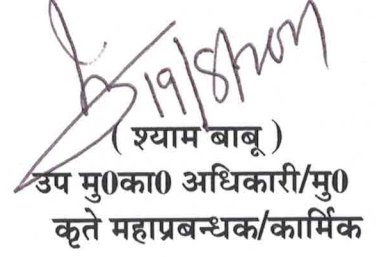 ( श्याम बाबू )
उप मु0का0 अधिकारी/मु0
कृते महाप्रबन्धक/कार्मिक